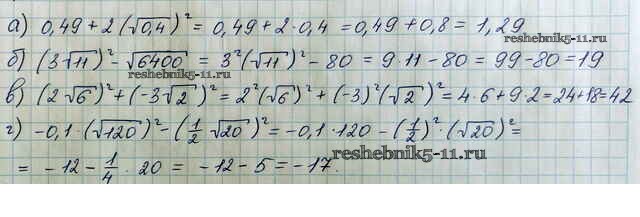 а) 0,49 + 2(√0,4)² = 0,49 + 2·0,4 = 0,49 + 0,8 = 1,29
reshebnik5-11.ru
б) (3√11)² - √6400 = 3²(√11)² - 80 = 9·11 - 80 = 99 - 80 = 19
reshebnik5-11.ru
в) (2√6)² + (-3√2)² = 2²(√6)² + (-3)²(√2)² = 4·6 + 9·2 = 24 + 18 = 42
г) -0,1·(√120)² - (1/2 √20)² = -0,1·120 - (1/2)²·(√20)² =
= -12 - 1/4 · 20 = -12 - 5 = -17.
reshebnik5-11.ru